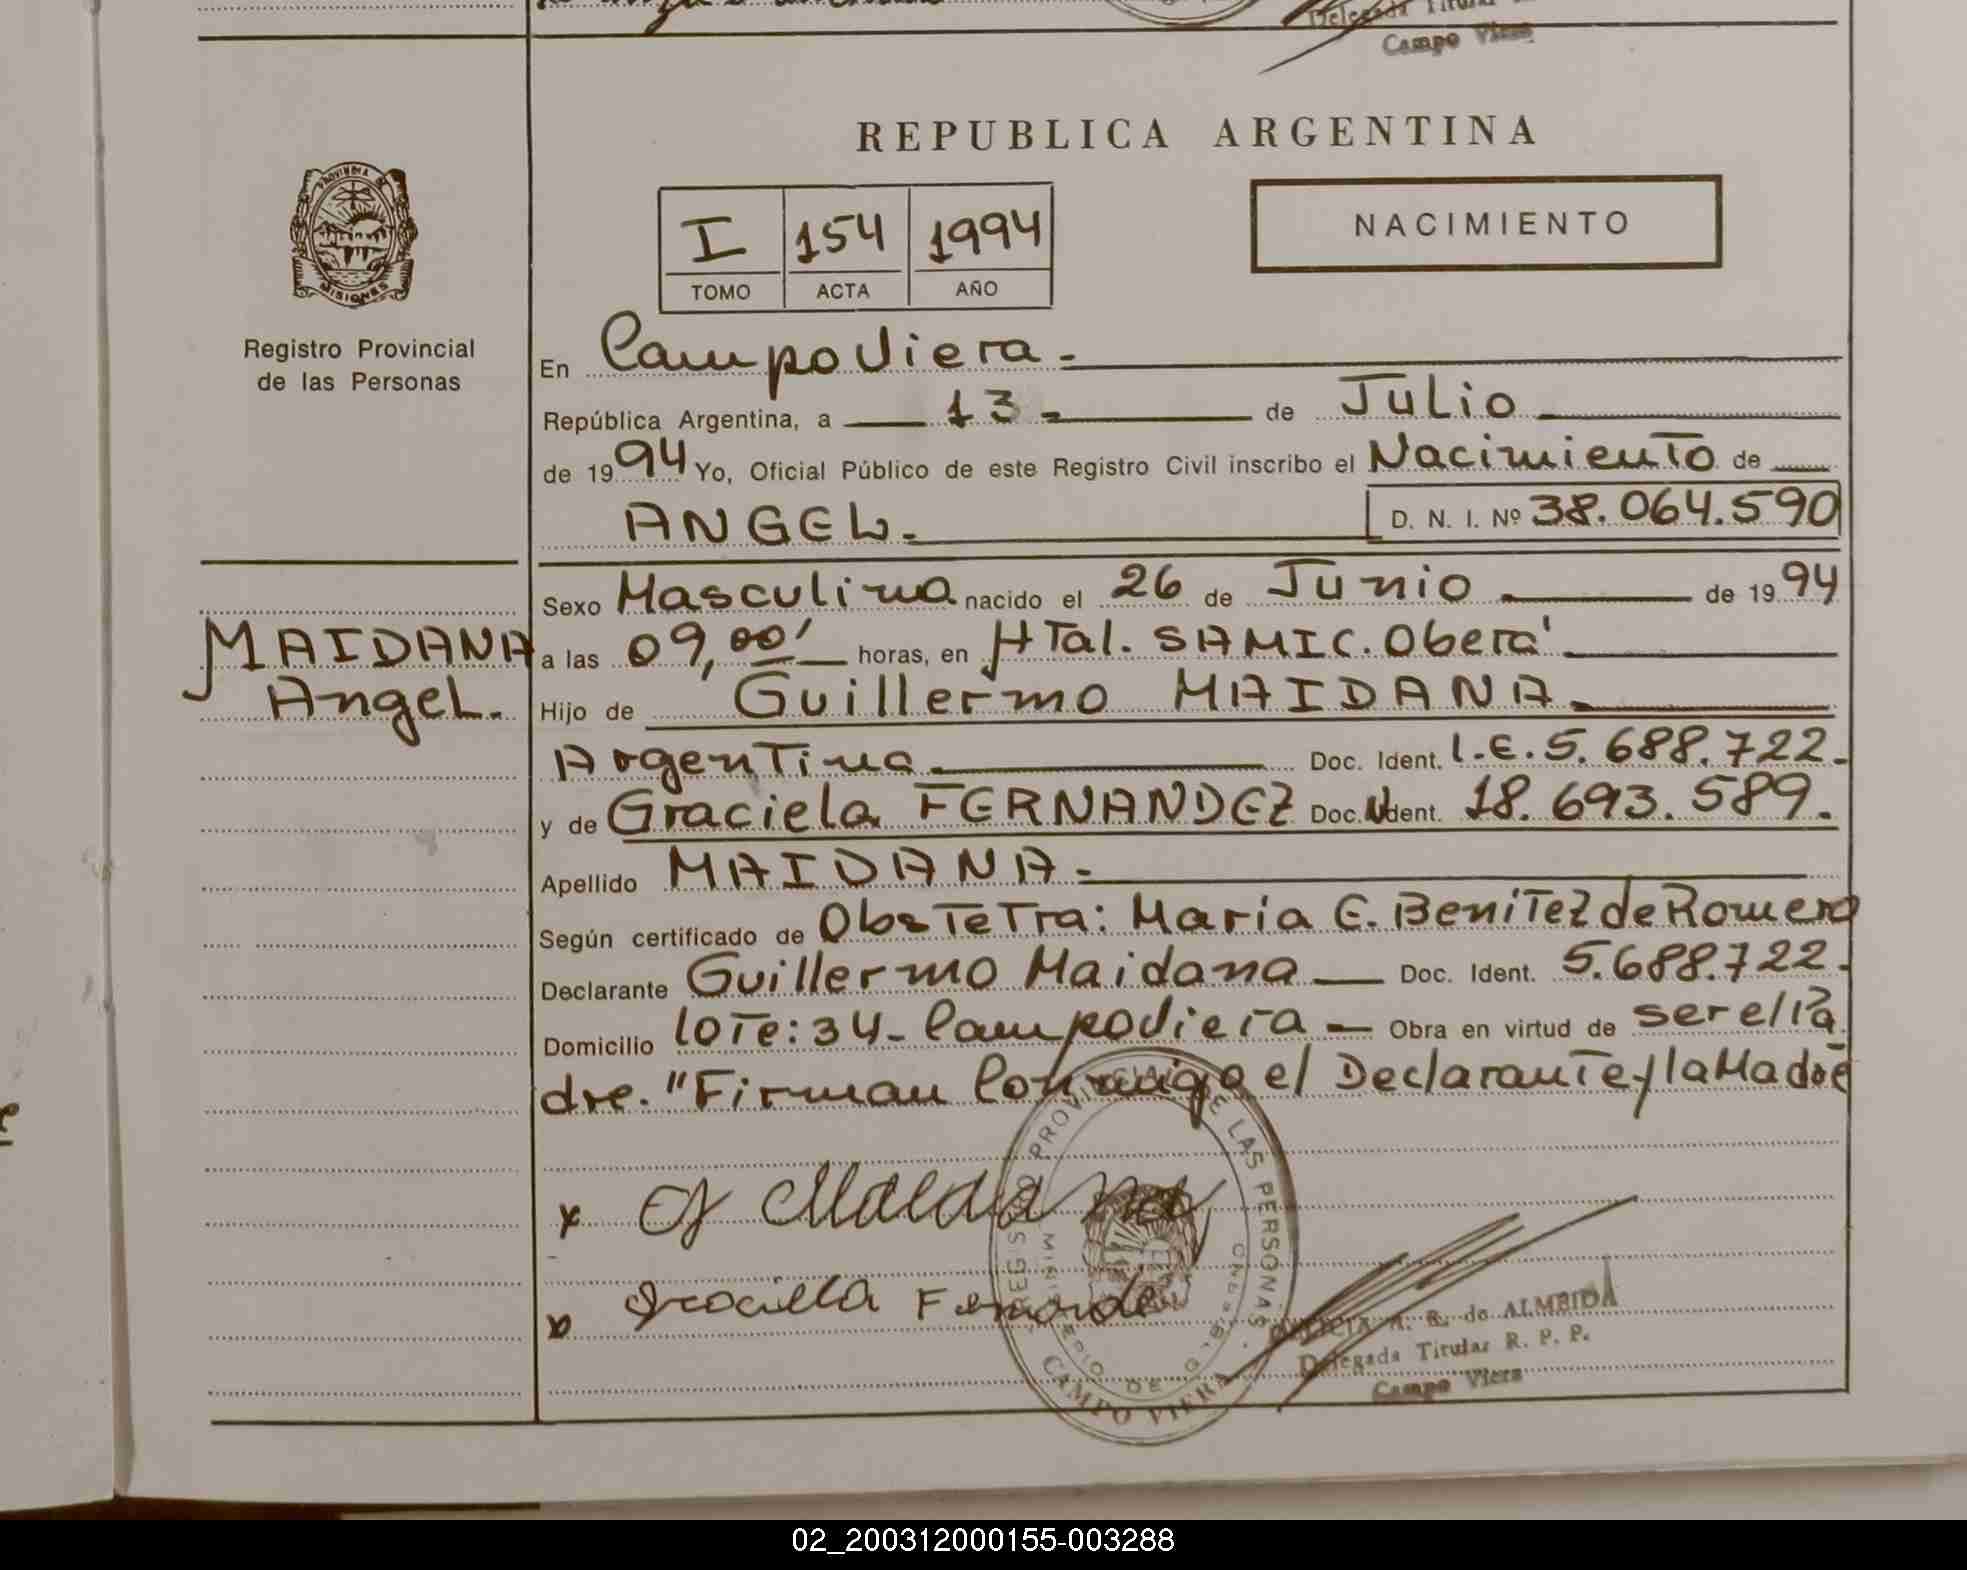 Campo Viera
REPUBLICA ARGENTINA
PROVINCIA DE
MISIONES
NACIMIENTO
I 154 1994
TOMO ACTA AÑO
Registro Provincial
de las Personas
En Campo Viera.-
República Argentina, a 13- de Julio
de 1994 Yo, Oficial Público de este Registro Civil inscribo el Nacimiento de
ANGEL.- D. N. I. Nº 38.064.590
Sexo Masculino nacido el 26 de Junio de 1994
MAIDANA
Angel.
a las 09,00' horas, en HTal. SAMIC. Oberá
Hijo de Guillermo MAIDANA.
Argentina Doc. Ident. L.E. 5.688.722.
y de Graciela FERNANDEZ Doc. Ident. 18.693.589.
Apellido MAIDANA.-
Según certificado de ObsTeTra: Maria E. BeniTez de Romero
Declarante Guillermo Maidana Doc. Ident. 5.688.722.
Domicilio loTe: 34- Campo Viera Obra en virtud de ser el Pa
dre. "Firman Conmigo el DeclaranTe y la Madre
x G Maidana
Fernande
REGISTRO PROVINCIAL DE LAS PERSONAS
CAMPO VIERA
A. R. de ALMEIDA
Delegada Titular R. P. P.
Campo Viera
02_200312000155-003288